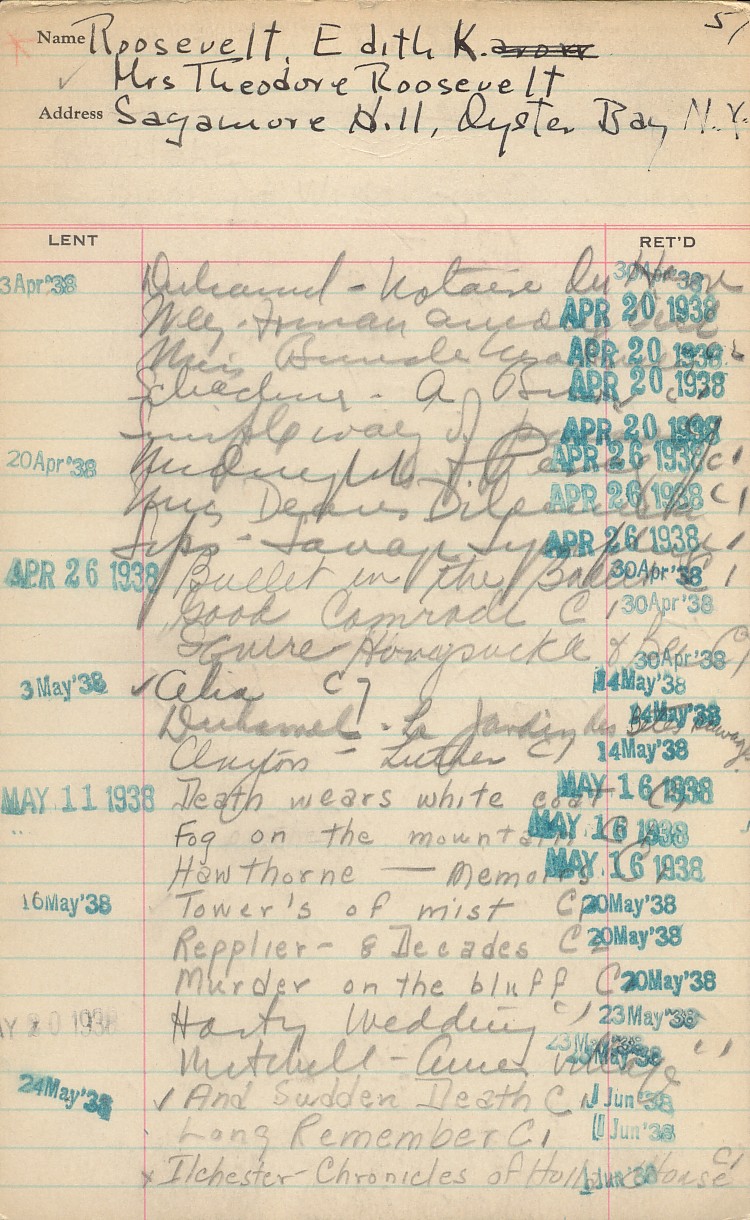 51
Name Roosevelt, Edith K.
Mrs Theodore Roosevelt
Address Sagamore Hill, Oyster Bay N.Y.
LENT RET'D
3 Apr '38 Duhamel - Notaire Du Havre 30 Apr '38
APR 20 1938
Miss APR 20 1938
A APR 20 1938
way of APR 20 1938
20 Apr '38 APR 26 1938 C1
Mrs APR 26 1938 C1
Savage APR 26 1938
APR 26 1938 Bullet in the Ballet C1 30 Apr '38
Good Comrade C1 30 Apr '38
Squire Honeysuckle & Bee C1 30 Apr '38
3 May '38 ✓ Celia C1 14 May '38
Duhamel - Le Jardin des Betes Sauvages 14 May '38
Clayton - Luther C1 14 May '38
MAY 11 1938 Death wears white coat C1 MAY 16 1938
Fog on the mountain C1 MAY 16 1938
Hawthorne — Memoirs C1 MAY 16 1938
16 May '38 Tower's of mist C1 20 May '38
Repplier - 8 Decades C2 20 May '38
Murder on the bluff C1 20 May '38
MAY 20 1938 Hasty Wedding C1 23 May '38
Mitchell - Amer. Village C1 23 May '38
24 May '38 ✓ And Sudden Death C1 1 Jun '38
Long Remember C1 1 Jun '38
x Ilchester - Chronicles of Holland House C1 1 Jun '38